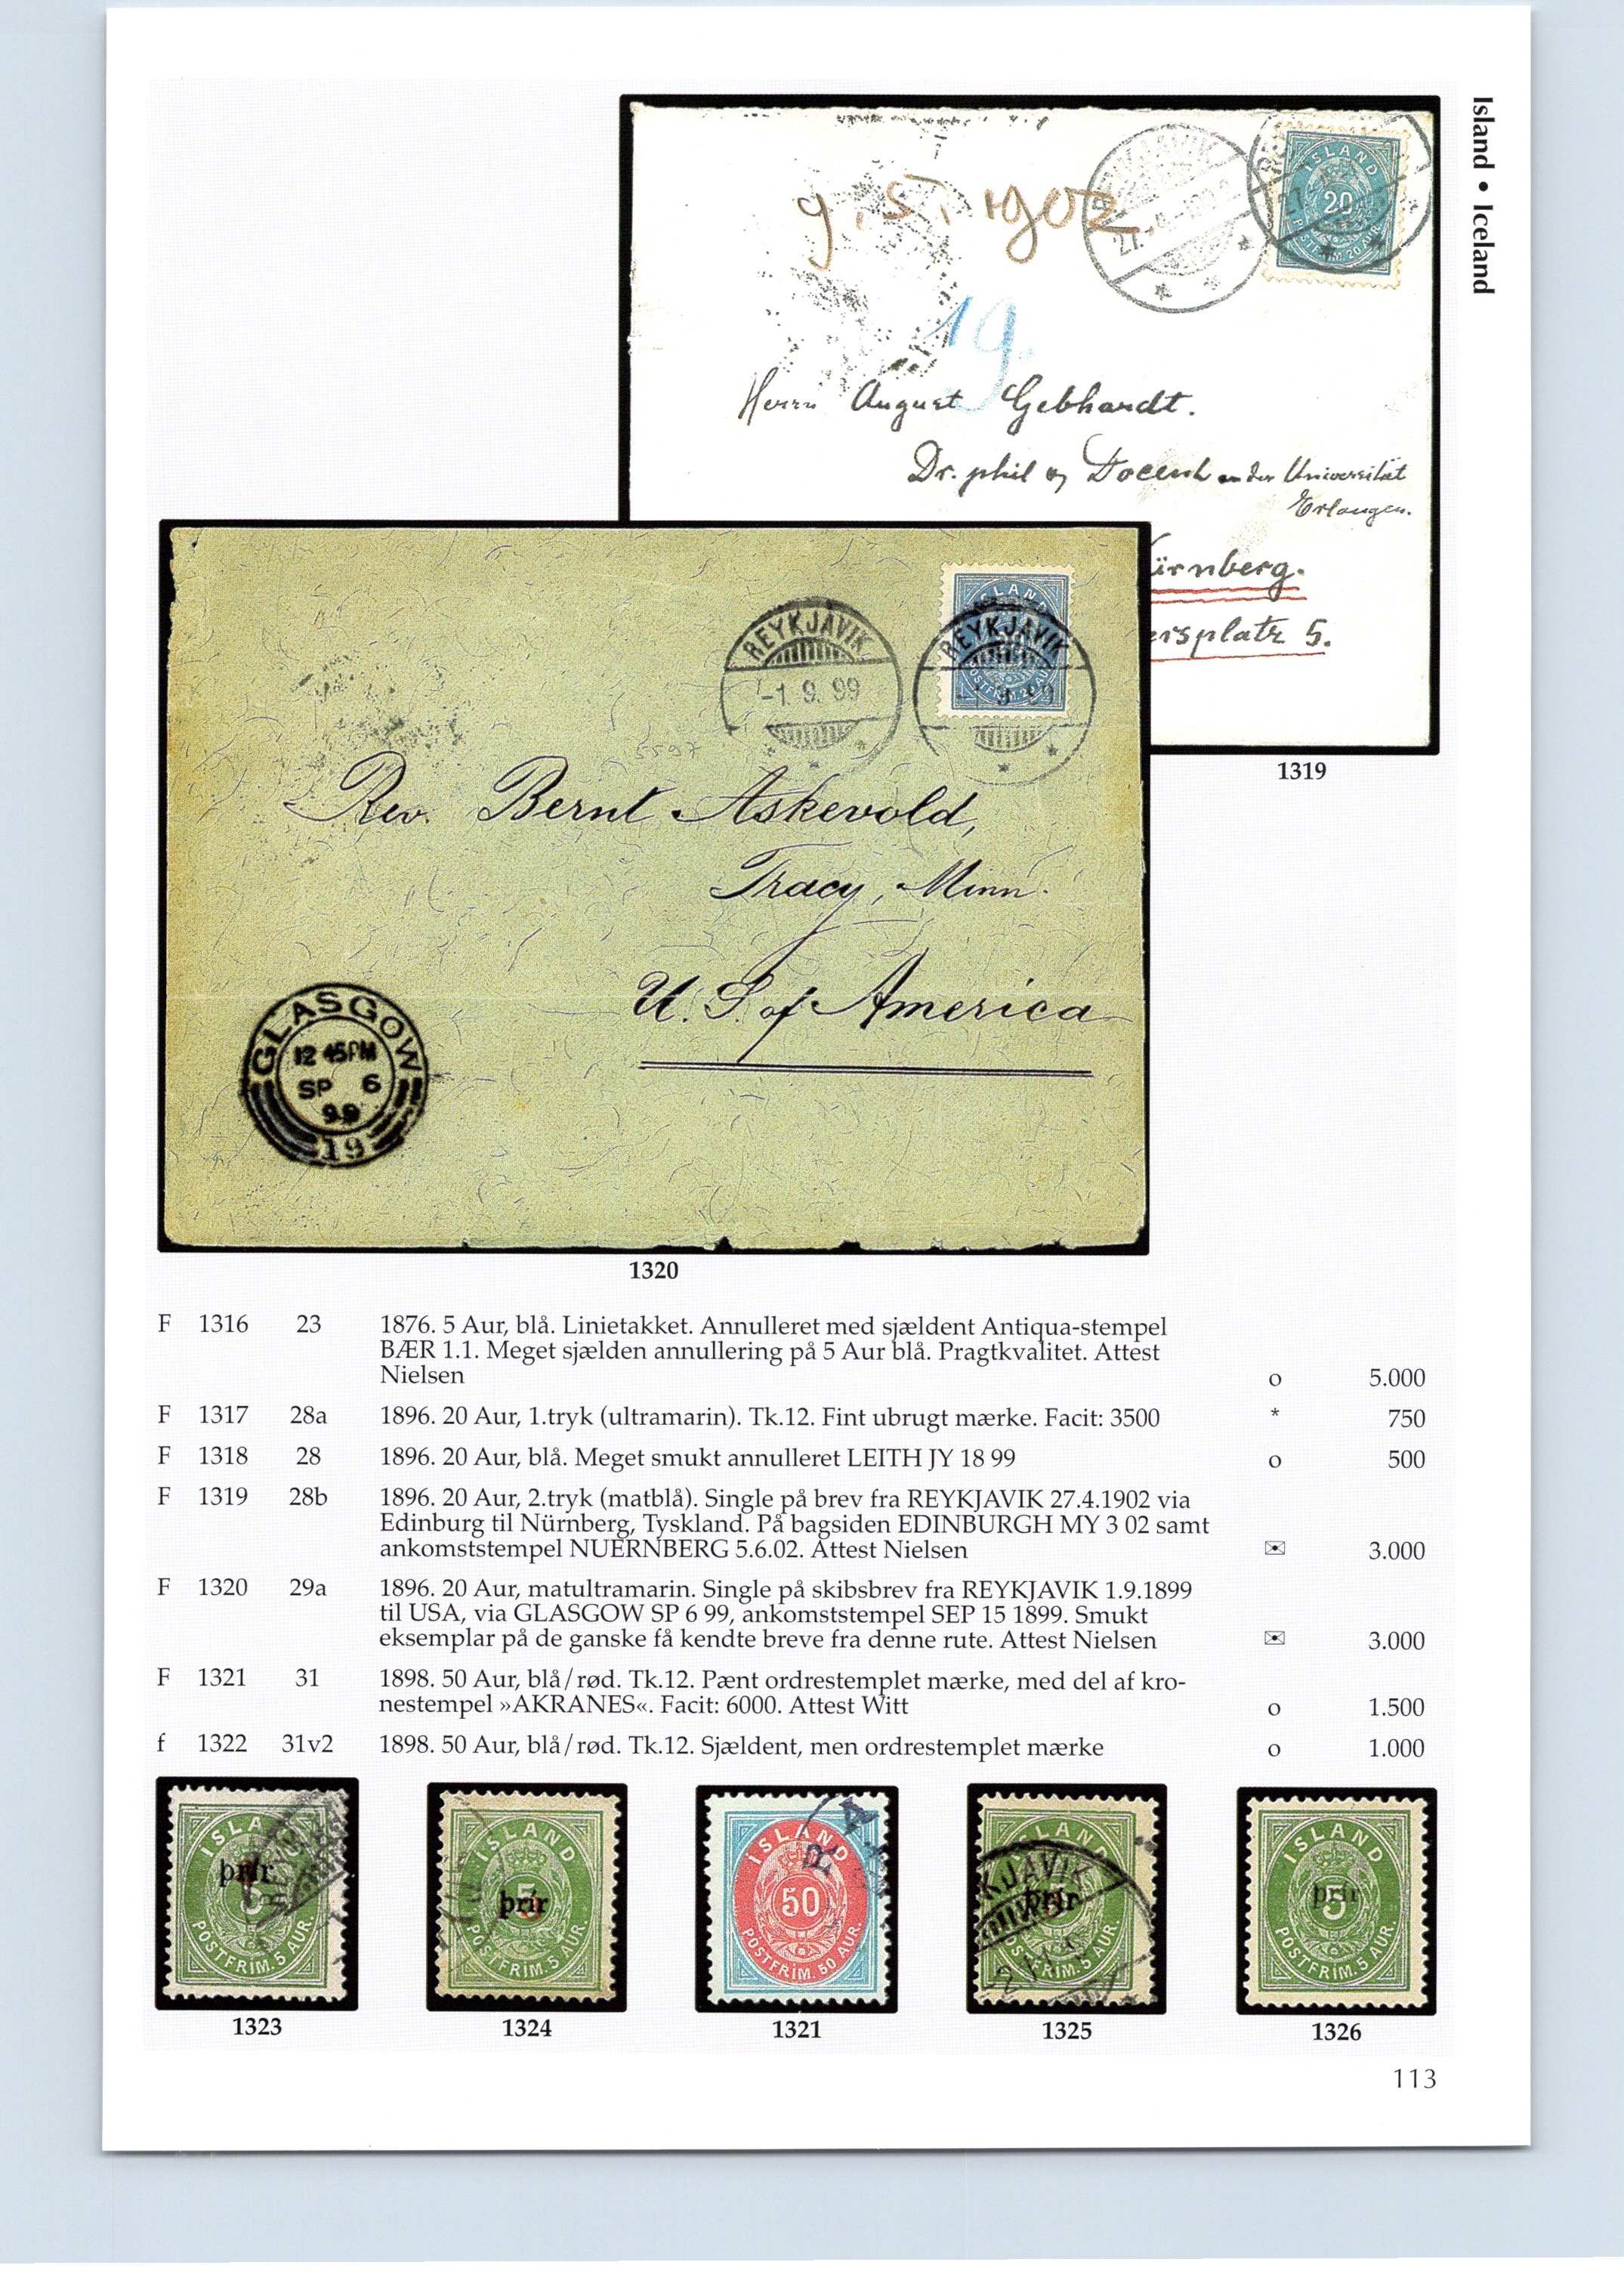 Island • Iceland
REYKJAVIK
27.4.1902
ISLAND
20
POSTFRIM. 20 AUR
9. 5. 1902
19
Herrn August Gebhardt.
Dr. phil og Docent an der Universität
Erlangen.
ürnberg.
ersplatz 5.
1319
REYKJAVIK
-1. 9. 99
ISLAND
REYKJAVIK
-1. 9. 99
5597
Rev. Bernt Askevold,
Tracy, Minn.
U. S. of America
GLASGOW
12 45PM
SP 6
99
19
1320
F 1316 23 1876. 5 Aur, blå. Linietakket. Annulleret med sjældent Antiqua-stempel
BÆR 1.1. Meget sjælden annullering på 5 Aur blå. Pragtkvalitet. Attest
Nielsen o 5.000
F 1317 28a 1896. 20 Aur, 1.tryk (ultramarin). Tk.12. Fint ubrugt mærke. Facit: 3500 * 750
F 1318 28 1896. 20 Aur, blå. Meget smukt annulleret LEITH JY 18 99 o 500
F 1319 28b 1896. 20 Aur, 2.tryk (matblå). Single på brev fra REYKJAVIK 27.4.1902 via
Edinburg til Nürnberg, Tyskland. På bagsiden EDINBURGH MY 3 02 samt
ankomststempel NUERNBERG 5.6.02. Attest Nielsen ✉ 3.000
F 1320 29a 1896. 20 Aur, matultramarin. Single på skibsbrev fra REYKJAVIK 1.9.1899
til USA, via GLASGOW SP 6 99, ankomststempel SEP 15 1899. Smukt
eksemplar på de ganske få kendte breve fra denne rute. Attest Nielsen ✉ 3.000
F 1321 31 1898. 50 Aur, blå/rød. Tk.12. Pænt ordrestemplet mærke, med del af kro-
nestempel »AKRANES«. Facit: 6000. Attest Witt o 1.500
f 1322 31v2 1898. 50 Aur, blå/rød. Tk.12. Sjældent, men ordrestemplet mærke o 1.000
ISLA
þrír
5
POSTFRIM. 5 AUR.
1323
ISLAND
5
þrír
POSTFRIM. 5 AUR.
1324
ISLAND
RA
50
POSTFRIM. 50 AUR.
1321
ISLAND
KJAVIK
þrír
POSTFRIM. 5 AUR.
1325
ISLAND
þrír
5
POSTFRIM. 5 AUR.
1326
113